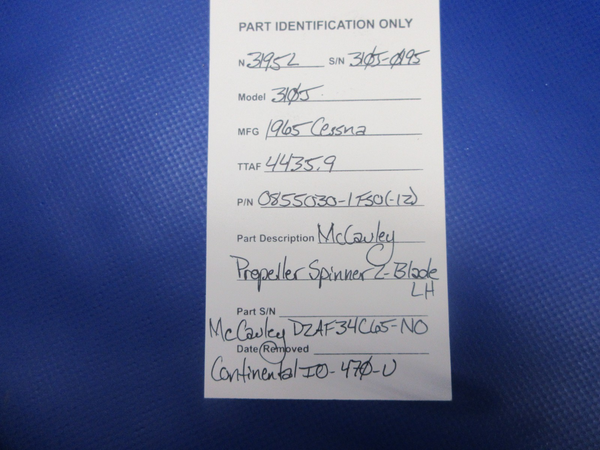 PART IDENTIFICATION ONLY
N 3195L S/N 310J-0195
Model 310J
MFG 1965 Cessna
TTAF 4435.9
P/N 0855030-1 FSO(-12)
Part Description McCauley
Propeller Spinner 2-Blade
LH
Part S/N
McCauley D2AF34C65-NO
Date Removed
Continental IO-470-U